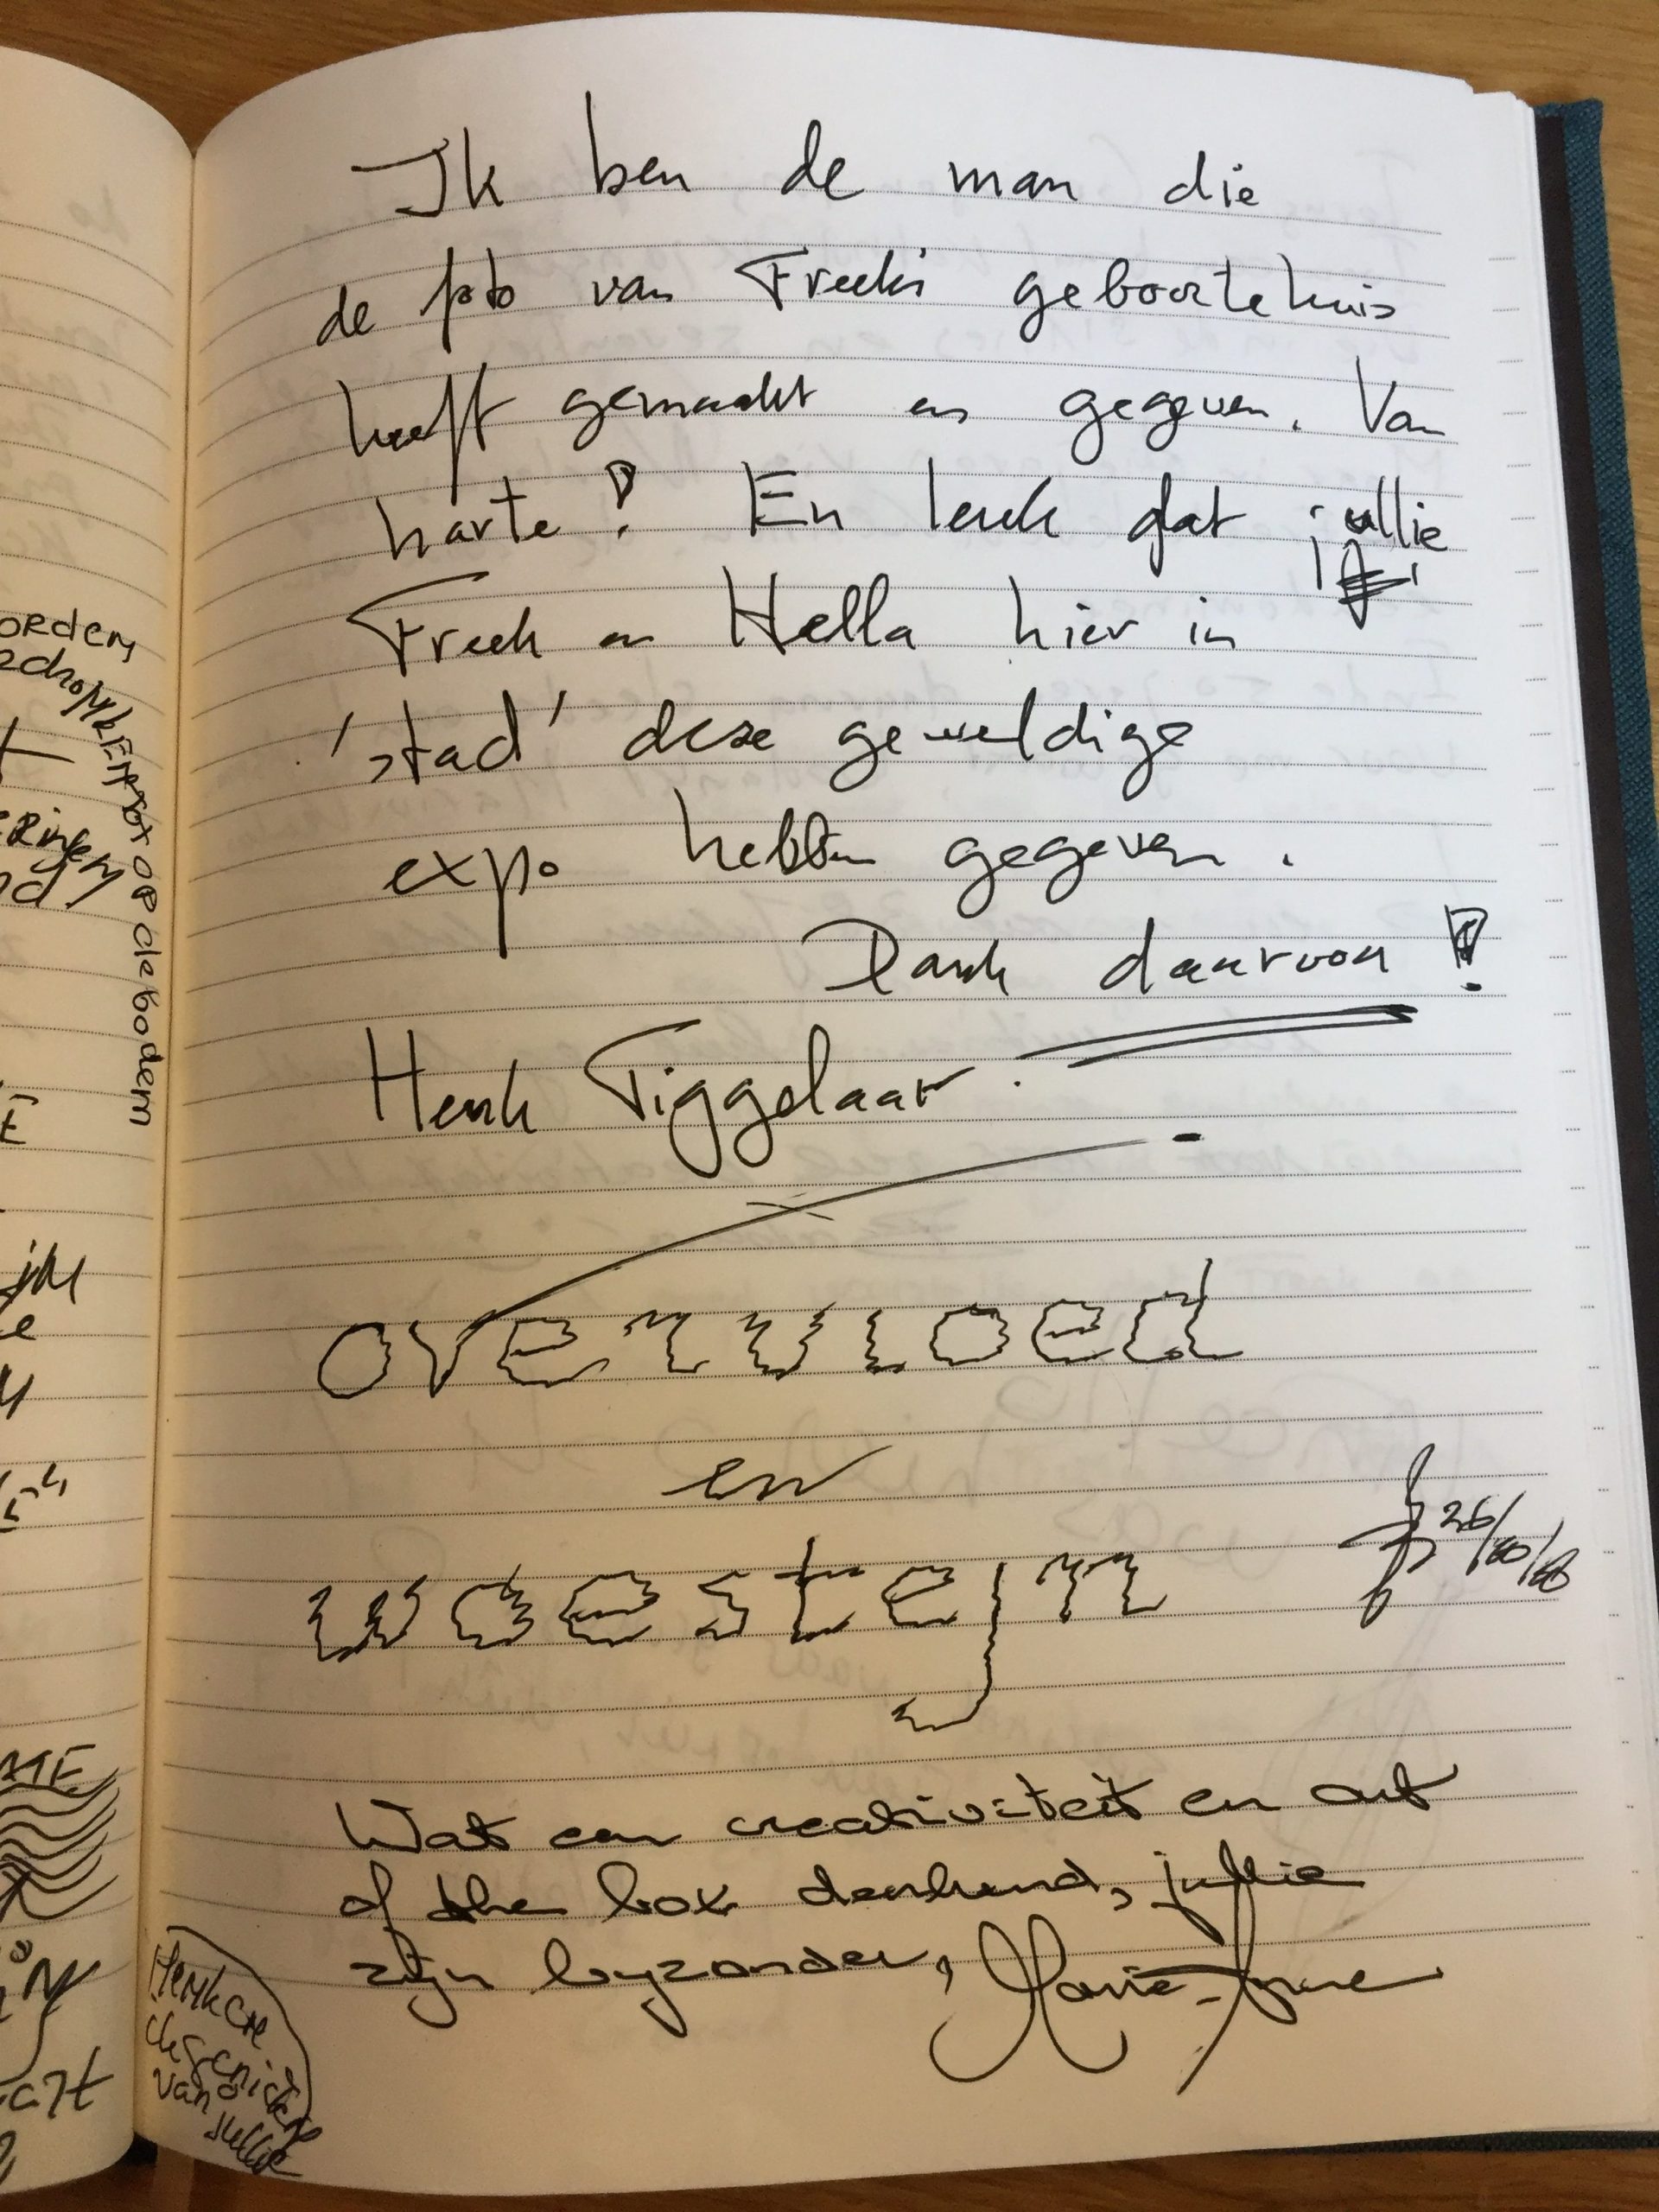 Ik ben de man die
de foto van Freeks geboortehuis
heeft gemaakt en gegeven. Van
harte! En leuk dat jullie
Freek en Hella hier in
'stad' deze geweldige
expo hebben gegeven.
Dank daarvoor!
Henk Tiggelaar.
overvloed
en
woestijn
26/10/18
Wat een creativiteit en out
of the box denkend, jullie
zijn byzonder, Marie-Anne
orden
tot op de bodem
van